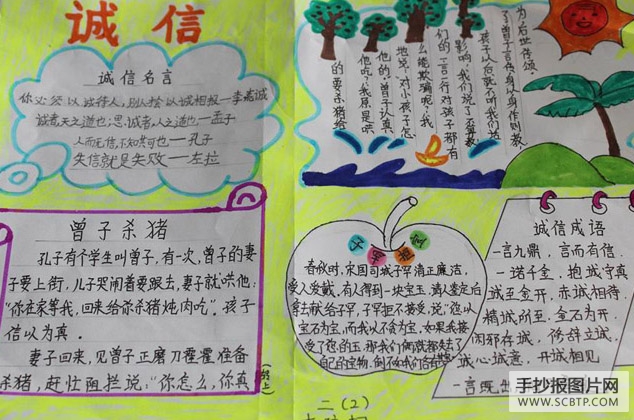 诚信
诚信名言
你必须以诚待人,别人才会以诚相报—李嘉诚
诚者,天之道也;思诚者,人之道也—孟子
人而无信,不知其可也—孔子
失信就是失败—左拉
曾子杀猪
孔子有个学生叫曾子,有一次,曾子的妻
子要上街,儿子哭闹着要跟去,妻子就哄他:
“你在家等我,回来给你杀猪炖肉吃”。孩子
信以为真。
妻子回来,见曾子正磨刀霍霍准备
杀猪,赶忙阻拦说:“你怎么,你真
(转上)
的要杀猪给
他吃?我原是哄
他的。”曾子认真
地说:“对小孩子怎
么能欺骗呢?我
们的一言一行对孩子都有
影响,我们说了不算数,
孩子以后就不听我们
了”曾子言传身以身作则教
为后世传颂。
春秋时,宋国司城子罕清正廉洁,
受人爱戴。有人得到一块宝玉,请人鉴定后
拿去献给子罕,子罕拒不接受,说:“您以
宝石为宝,而我以不贪为宝。如果我接
受了您的玉,那我们俩就都失去了
自己的宝物。倒不如我们各有其
诚信成语
一言九鼎,言而有信.
一诺千金,抱诚守真
诚至金开,赤诚相待.
精诚所至,金石为开.
闲邪存诚,修辞立诚.
诚心诚意,开诚相见
一言既出
二(2)
手抄报图片网
WWW.SCBTP.COM